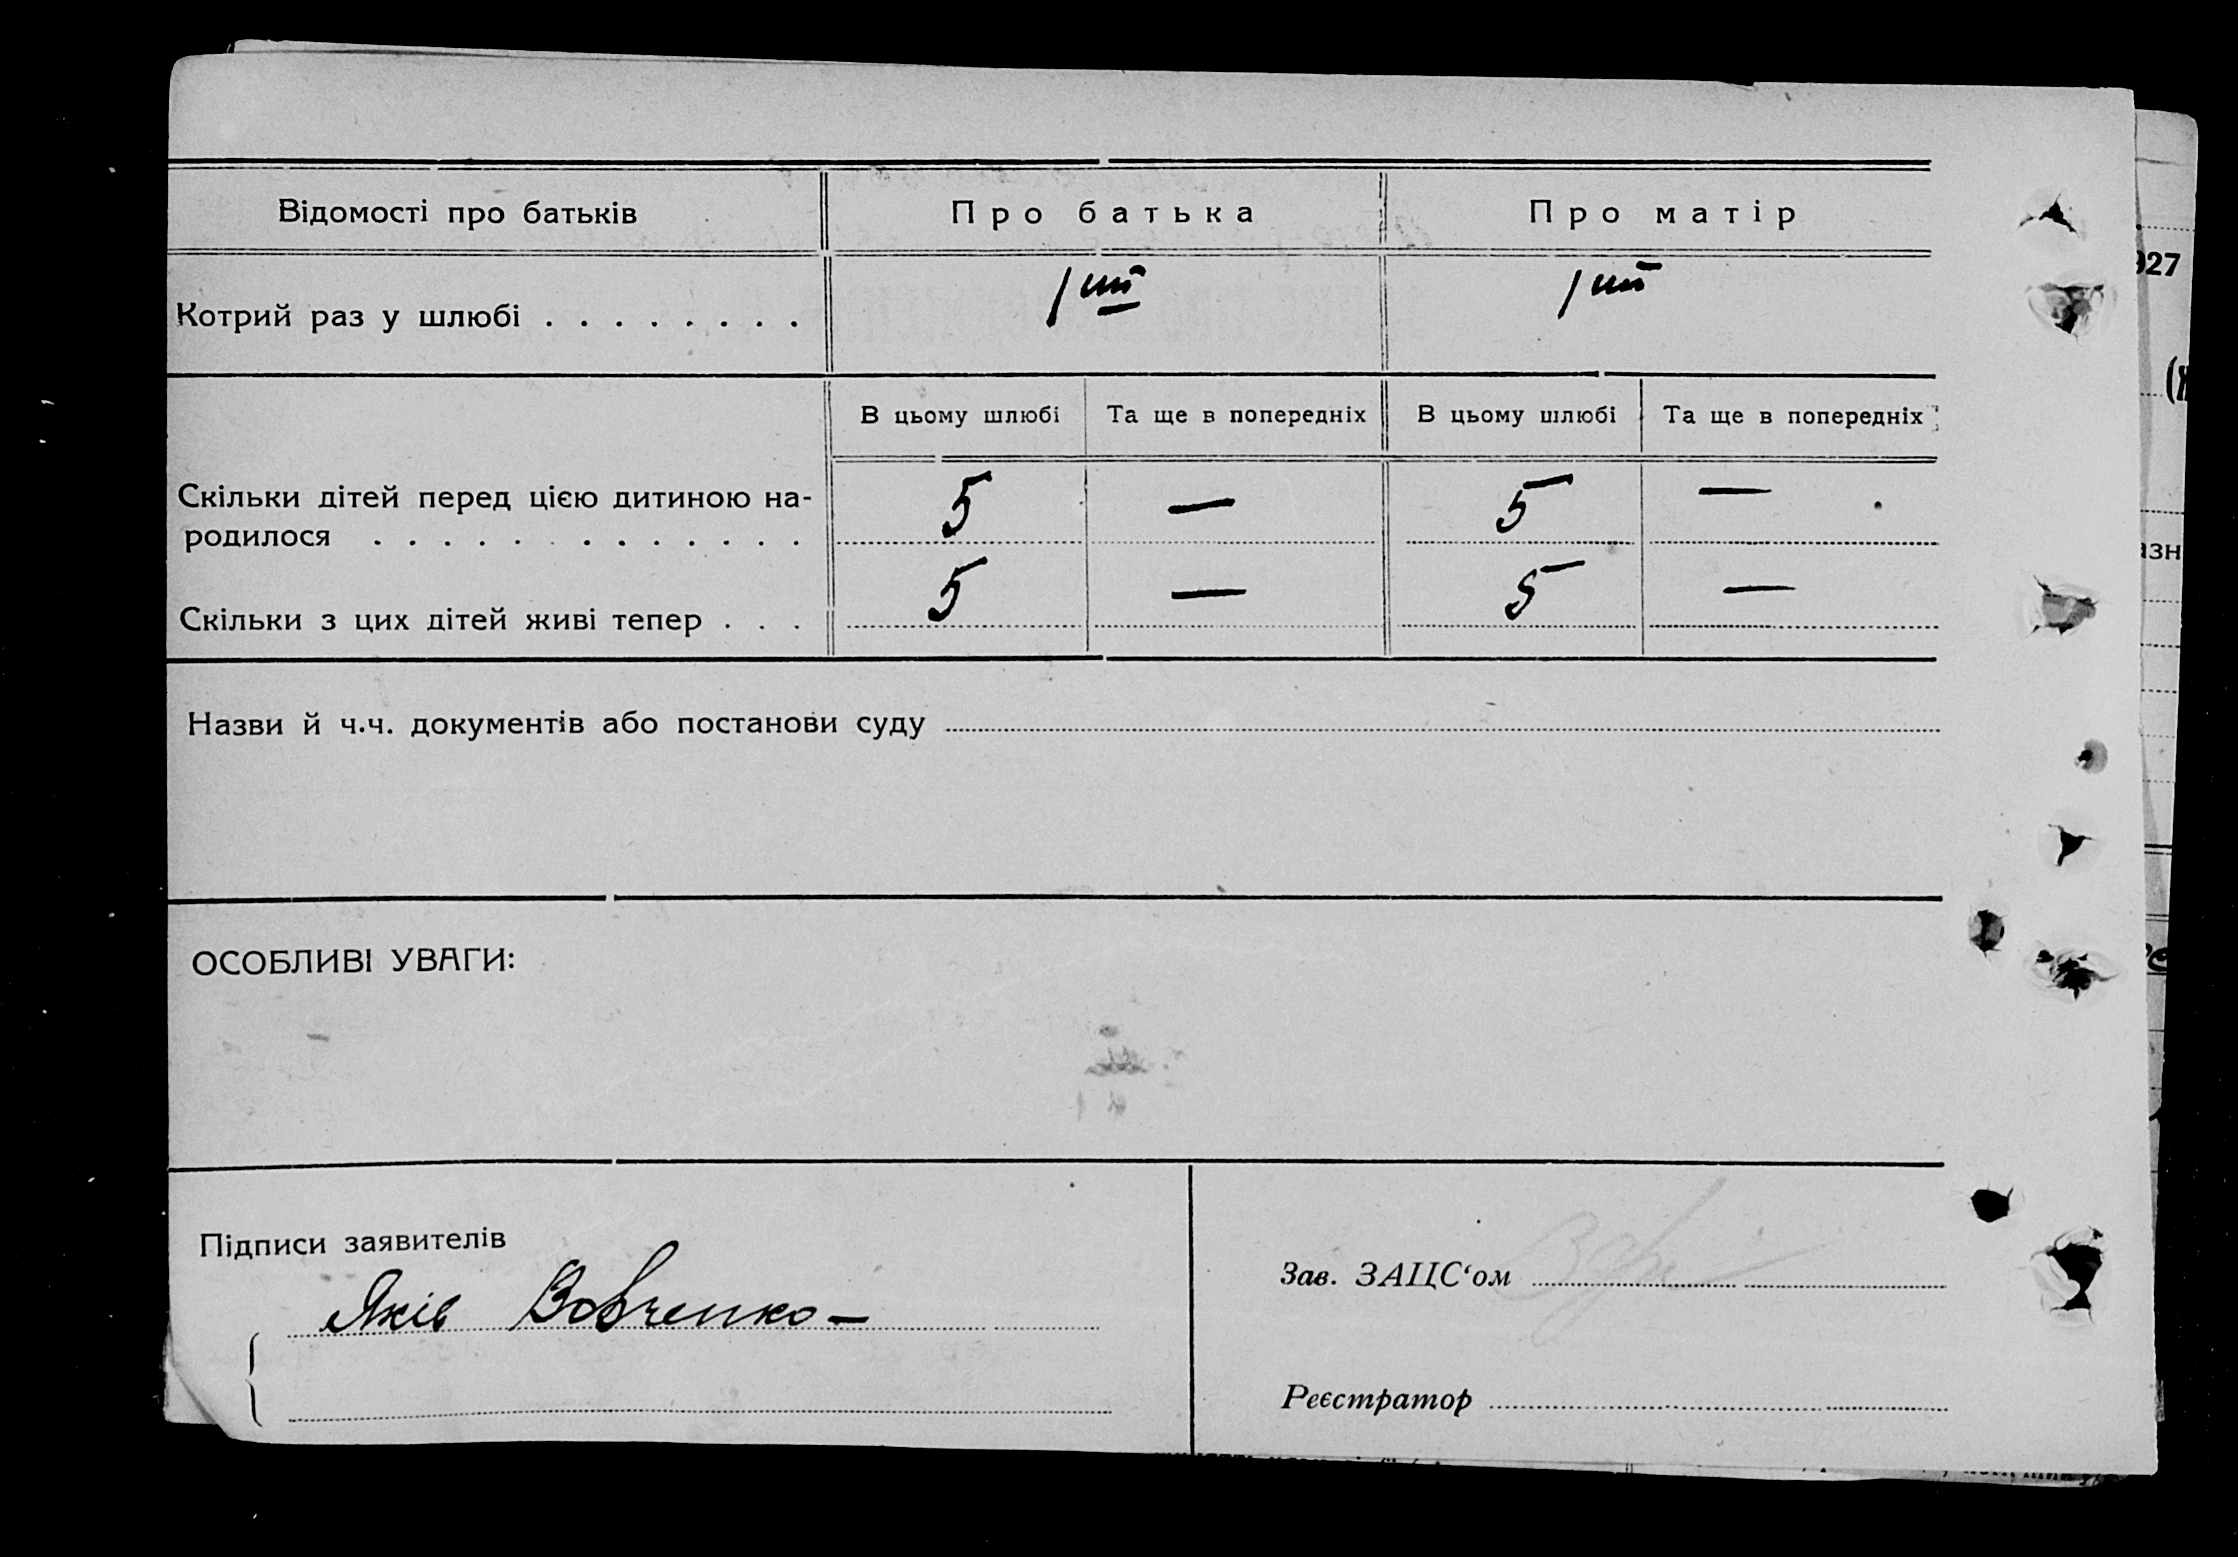 Відомості про батьків Про батька Про матір
Котрий раз у шлюбі . . . . . . . . 1ший 1ший
В цьому шлюбі Та ще в попередніх В цьому шлюбі Та ще в попередніх
Скільки дітей перед цією дитиною на-
родилося . . . . . . . . . . . . . 5 — 5 —
Скільки з цих дітей живі тепер . . . 5 — 5 —
Назви й ч.ч. документів або постанови суду
ОСОБЛИВІ УВАГИ:
Підписи заявителів
Яків Вовченко —
Зав. ЗАЦС‘ом
Реєстратор
927